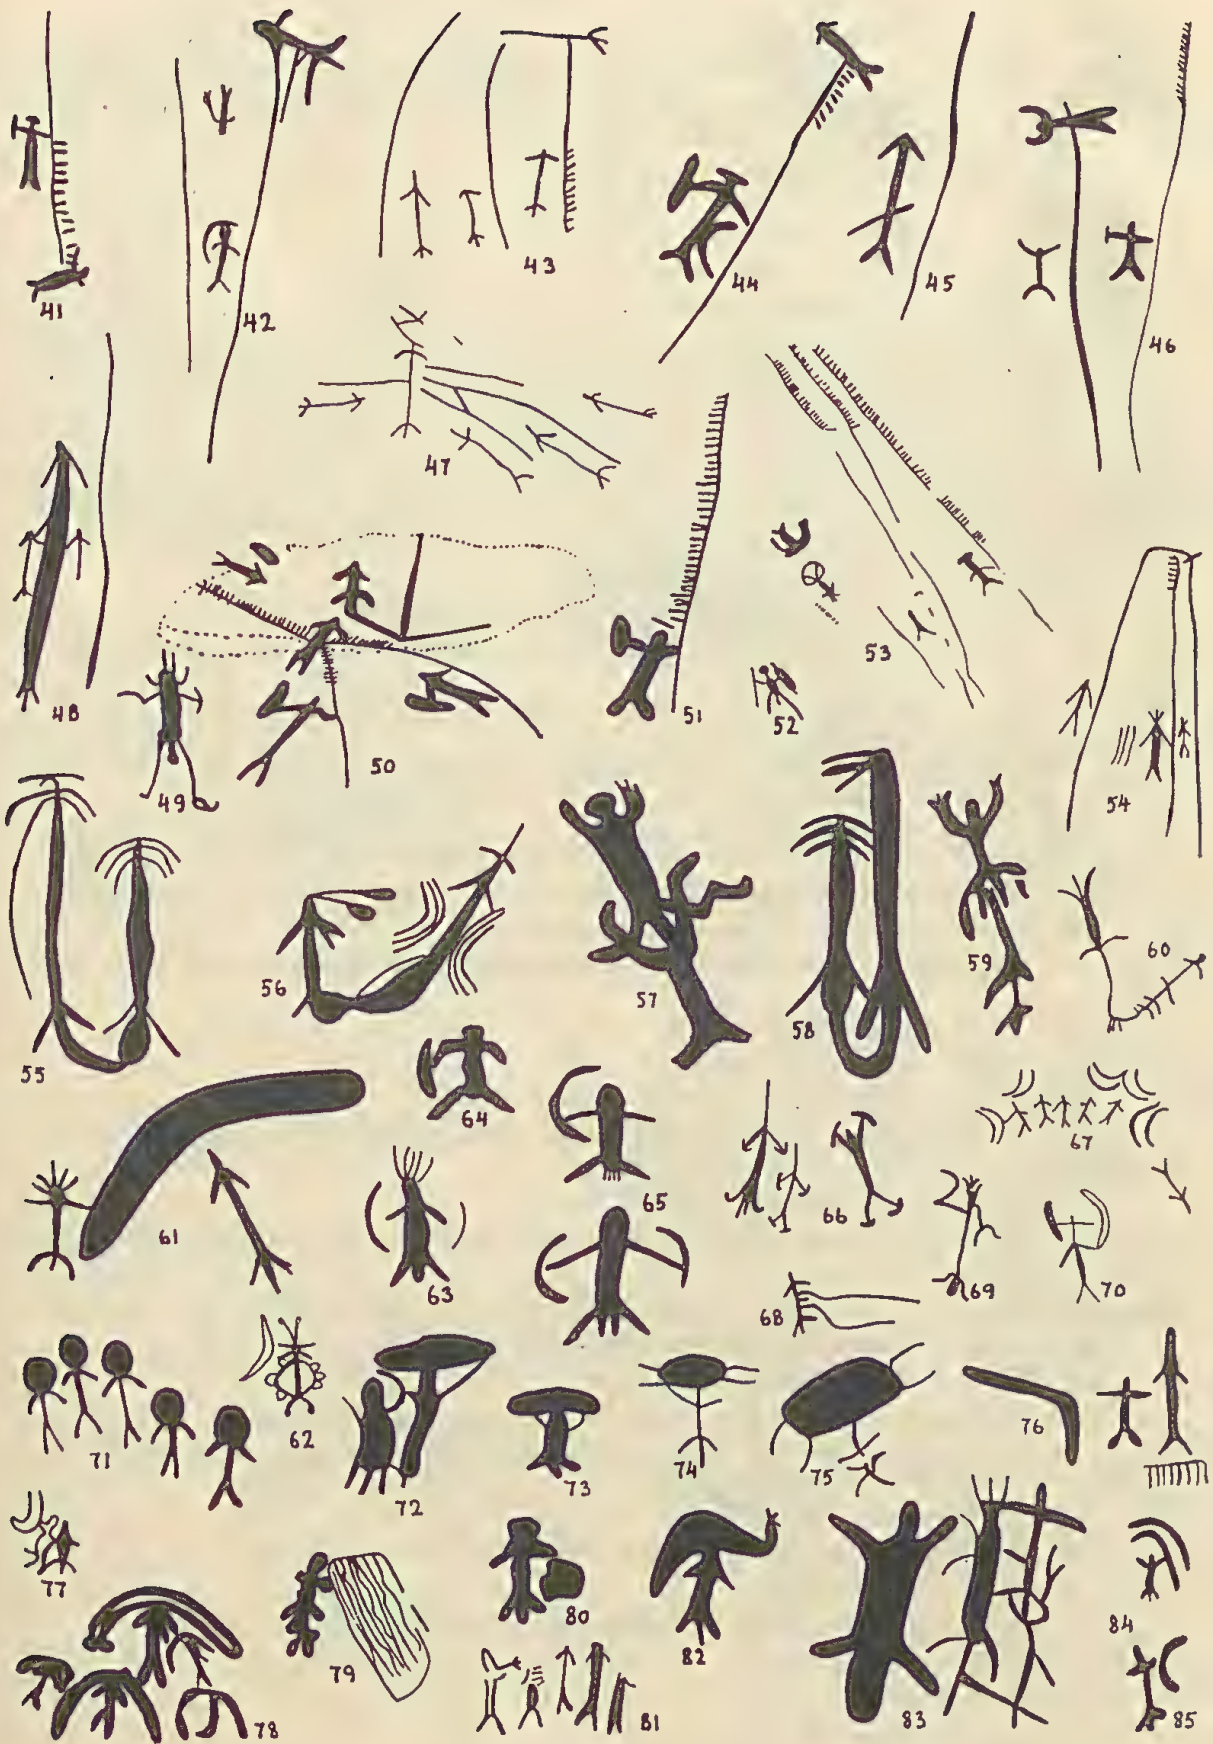 41
42
43
44
45
46
47
48
49
50
51
52
53
54
55
56
57
58
59
60
61
62
63
64
65
66
67
68
69
70
71
72
73
74
75
76
77
78
79
80
81
82
83
84
85